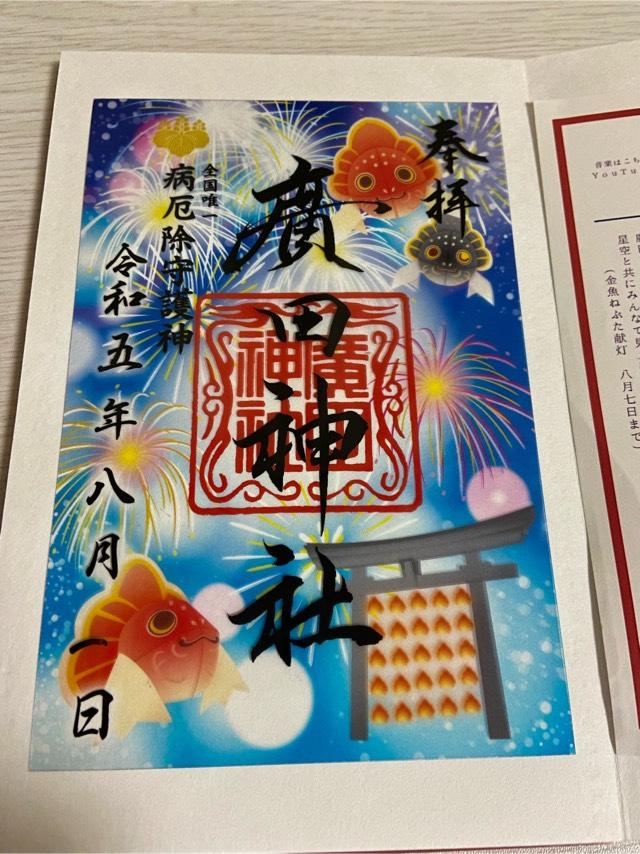 奉拝
廣田神社
廣田
神社
全国唯一
病厄除守護神
令和五年八月一日
音楽はこち
YouTu
星空と共にみんなで見
（金魚ねぶた献灯　八月七日まで）